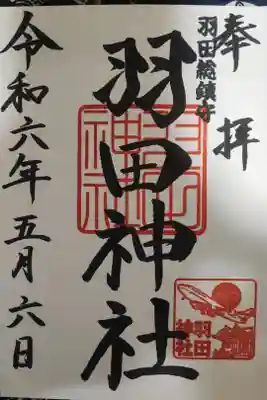 奉拝
羽田総鎮守
羽田神社
令和六年五月六日
羽田神社
羽田
神社